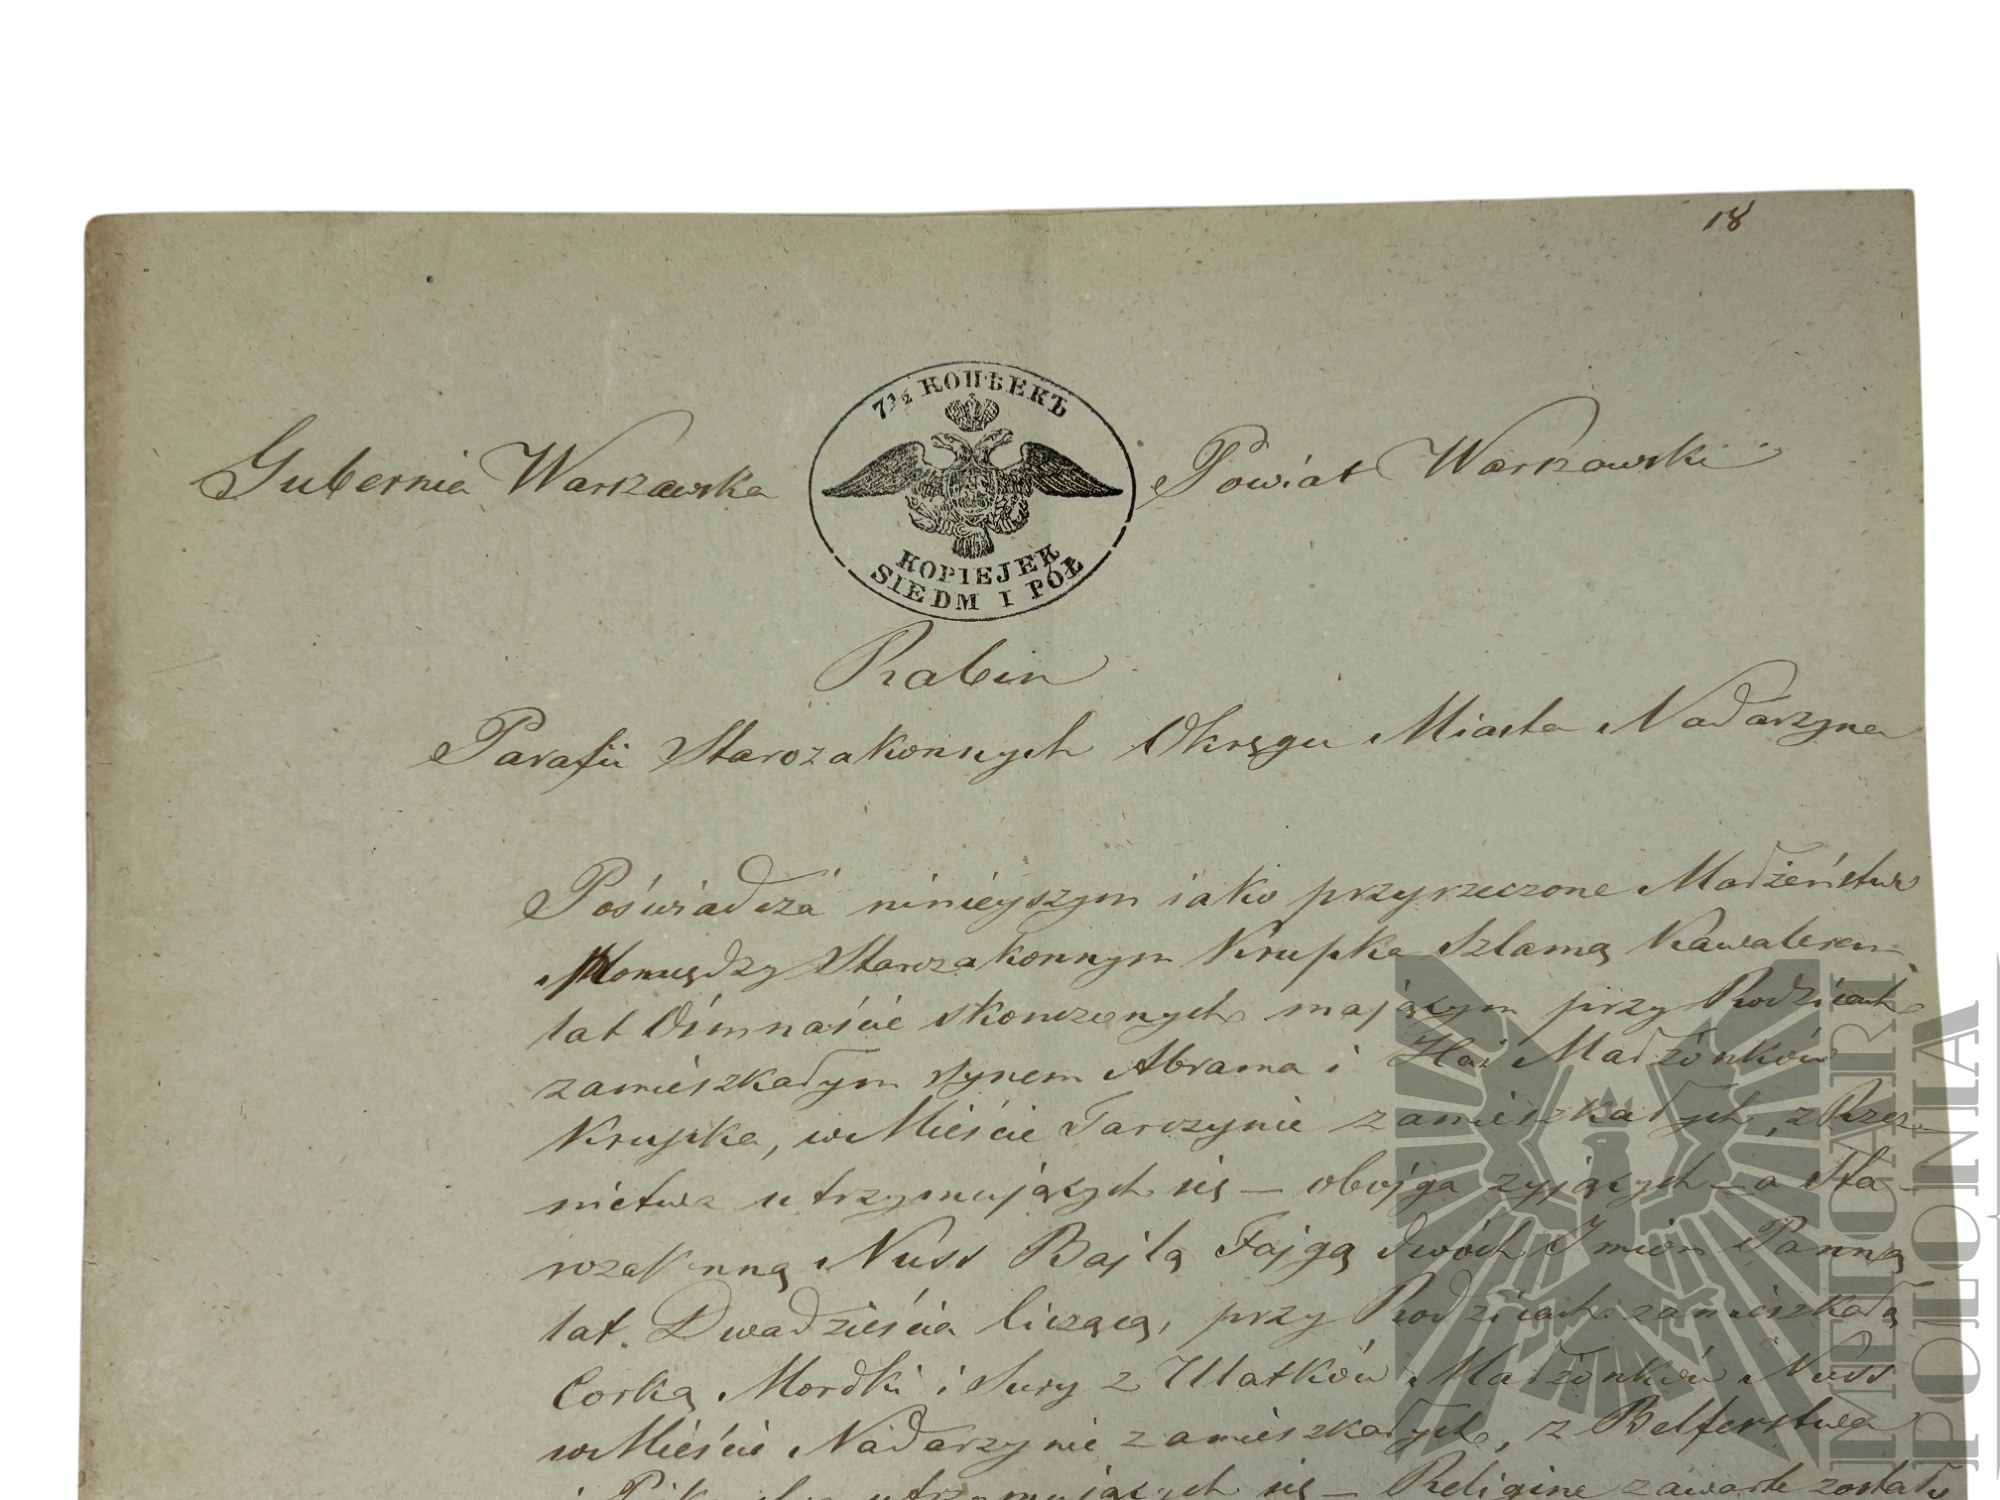 18
7½ КОПѢЕКЪ
Gubernia Warszawska
Powiat Warszawski
KOPIEJEK
SIEDM I PÓŁ
Rabin
Parafii Starozakonnych Okręgu Miasta Nadarzyna
Poświadcza niniejszym iako przyrzeczone Madżeństwo
Pomiędzy Starozakonnym Krupka Szlamą Kawalerem
lat Ośmnaście skonczonych mającym przy Rodzicach
zamieszkałym synem Abrama i Małżonków
Krupka, w Mieście Tarczynie zamieszkałych, z Rzez-
nictwa utrzymujących się – obojga zyjących – a Sta-
rozakonną Nuss Bajlą Fajgą dwóch Imion Panną
lat. Dwadzieścia liczącą, przy Rodzicach zamieszkałą
Corką Mordki i Sury z Małżonków Nuss
w Mieście Nadarzynie zamieszkałych, z Belferstwa
i utrzymujących się – Religine zawarte zostało
MILITARI
POLONIA